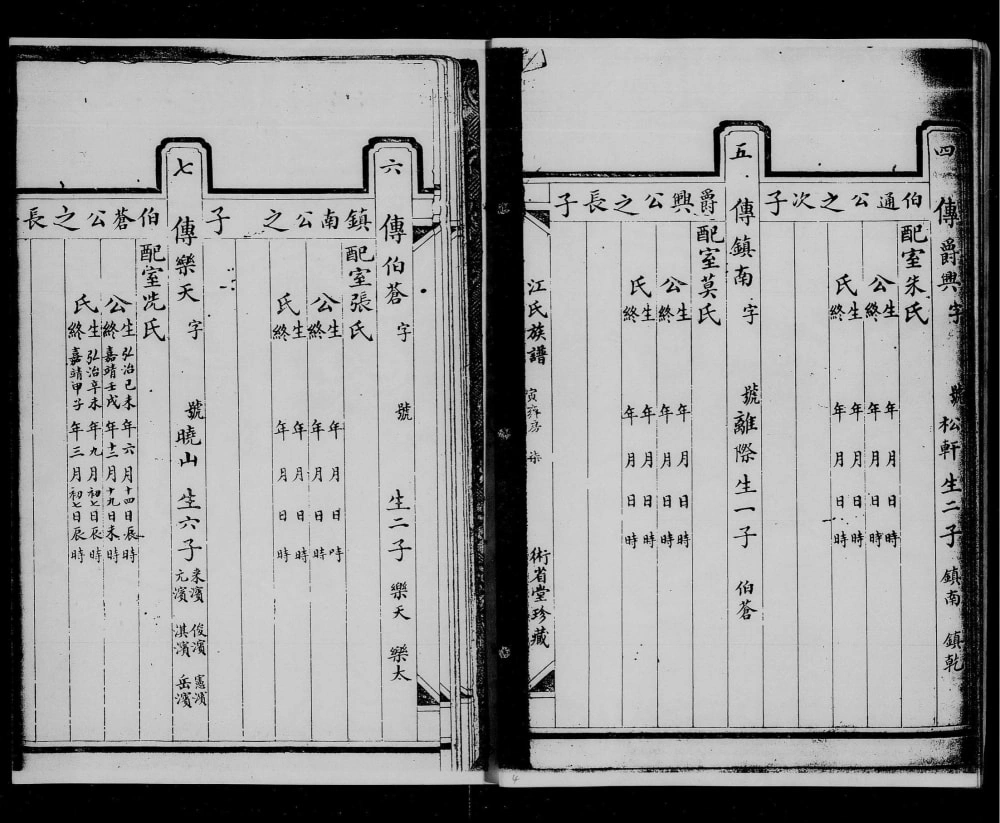 四
傳爵興字 號松軒生二子 鎮南 鎮乾
伯通公之次子
配室朱氏
公生 年 月 日 時
終 年 月 日 時
氏生 年 月 日 時
終 年 月 日 時
五
傳鎮南字 號離際生一子 伯蒼
爵興公之長子
配室莫氏
公生 年 月 日 時
終 年 月 日 時
氏生 年 月 日 時
終 年 月 日 時
江氏族譜 房 柒 術省堂珍藏
六
傳伯蒼字 號 生二子 樂天 樂太
鎮南公之子
配室張氏
公生 年 月 日 時
終 年 月 日 時
氏生 年 月 日 時
終 年 月 日 時
七
傳樂天字 號曉山 生六子 采濱 俊濱 憲濱
元濱 淇濱 岳濱
伯蒼公之長
配室冼氏
公生弘治己未年六月十四日辰時
終嘉靖壬戌年十二月十九日未時
氏生弘治辛未年九月初七日辰時
終嘉靖甲子年三月初七日辰時